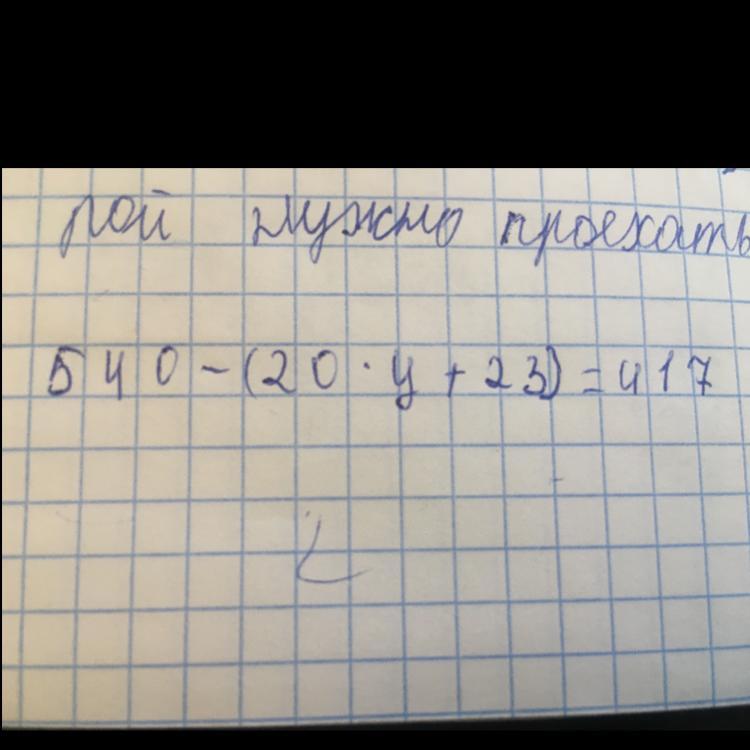 рой нужно проехать
540-(20·y+23)=417